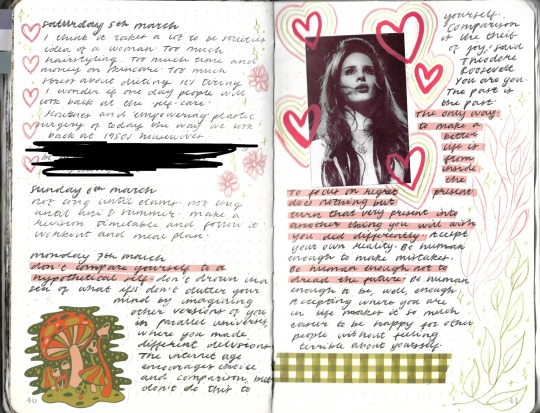 saturday 5th march
I think it takes a lot to be societies
idea of a woman. Too much
hairstyling. Too much time and
money on skincare. Too much
stress about dieting. Its tiring.
I wonder if one day people will
look back at the self-care
routines and empowering plastic
surgery of today the way we look
back at 1950s housewives
sunday 6th march
not long until exams. not long
until live & summer. make a
revision timetable and follow it.
workout and meal plan.
monday 7th march
don't compare yourself to a
hypothetical self. don't drown in a
sea of what ifs. don't clutter your
mind by imagining
other versions of you
in parallel universes
where you made
different decisions.
The internet age
encourages choice
and comparison, but
don't do this to
40
yourself.
'Comparison
is the thief
of joy,' said
Theodore
Roosevelt
You are you.
The past is
the past.
The only way
to make a
better
life is
from
inside
the
present
To focus on regret
does nothing but
turn that very present into
another thing you will wish
you did differently. Accept
your own reality. Be human
enough to make mistakes.
Be human enough not to
dread the future. Be human
enough to be, well, enough.
Accepting where you are
in life makes it so much
easier to be happy for other
people without feeling
terrible about yourself.
41